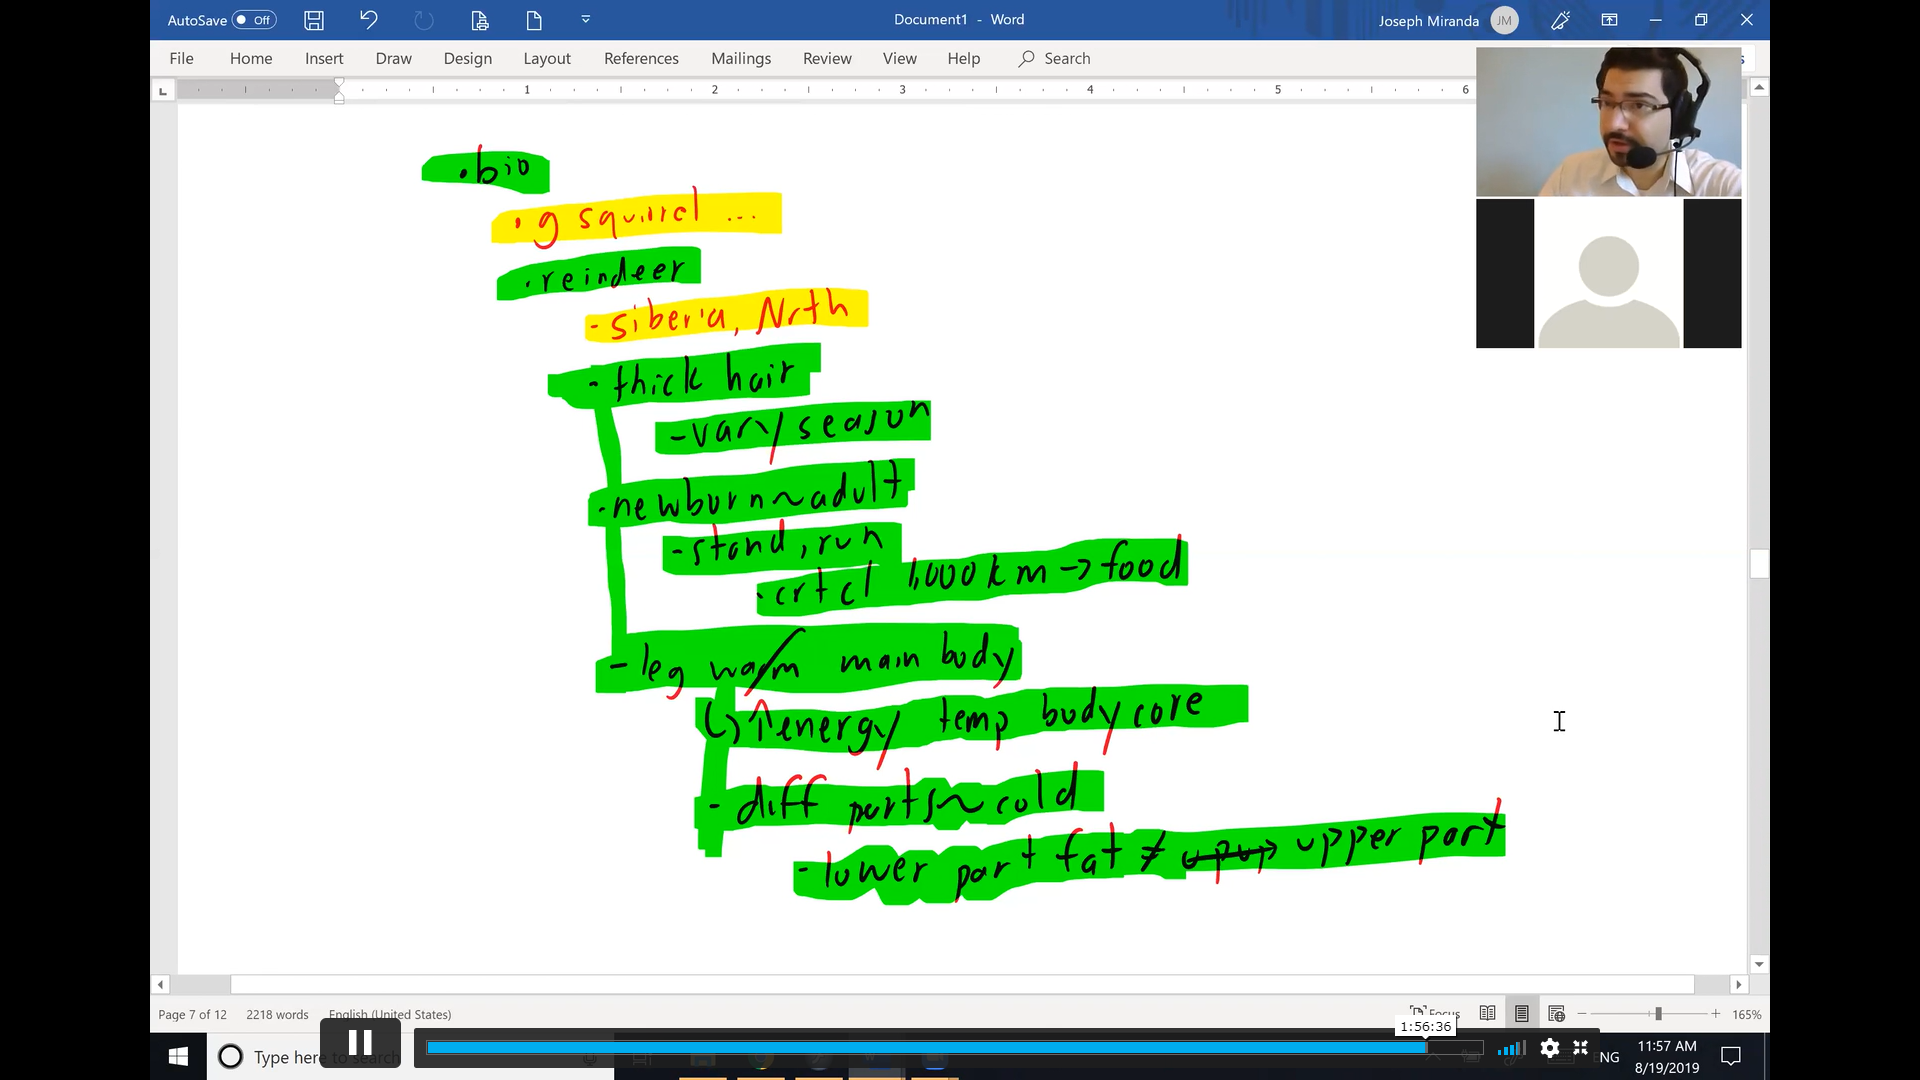 AutoSave Off Document1 - Word Joseph Miranda JM
File Home Insert Draw Design Layout References Mailings Review View Help Search
1 2 3 4 5 6
• bio
• g squirrel ...
• reindeer
- siberia, Nrth
- thick hair
- vary season
- newborn ~ adult
- stand, run
• crtcl 1,000 km → food
- leg warm main body
↑ energy temp body core
- diff parts ~ cold
- lower part fat ≠ upper part
Page 7 of 12 2218 words English (United States) Focus 165%
1:56:36
Type here to search ENG 11:57 AM
8/19/2019